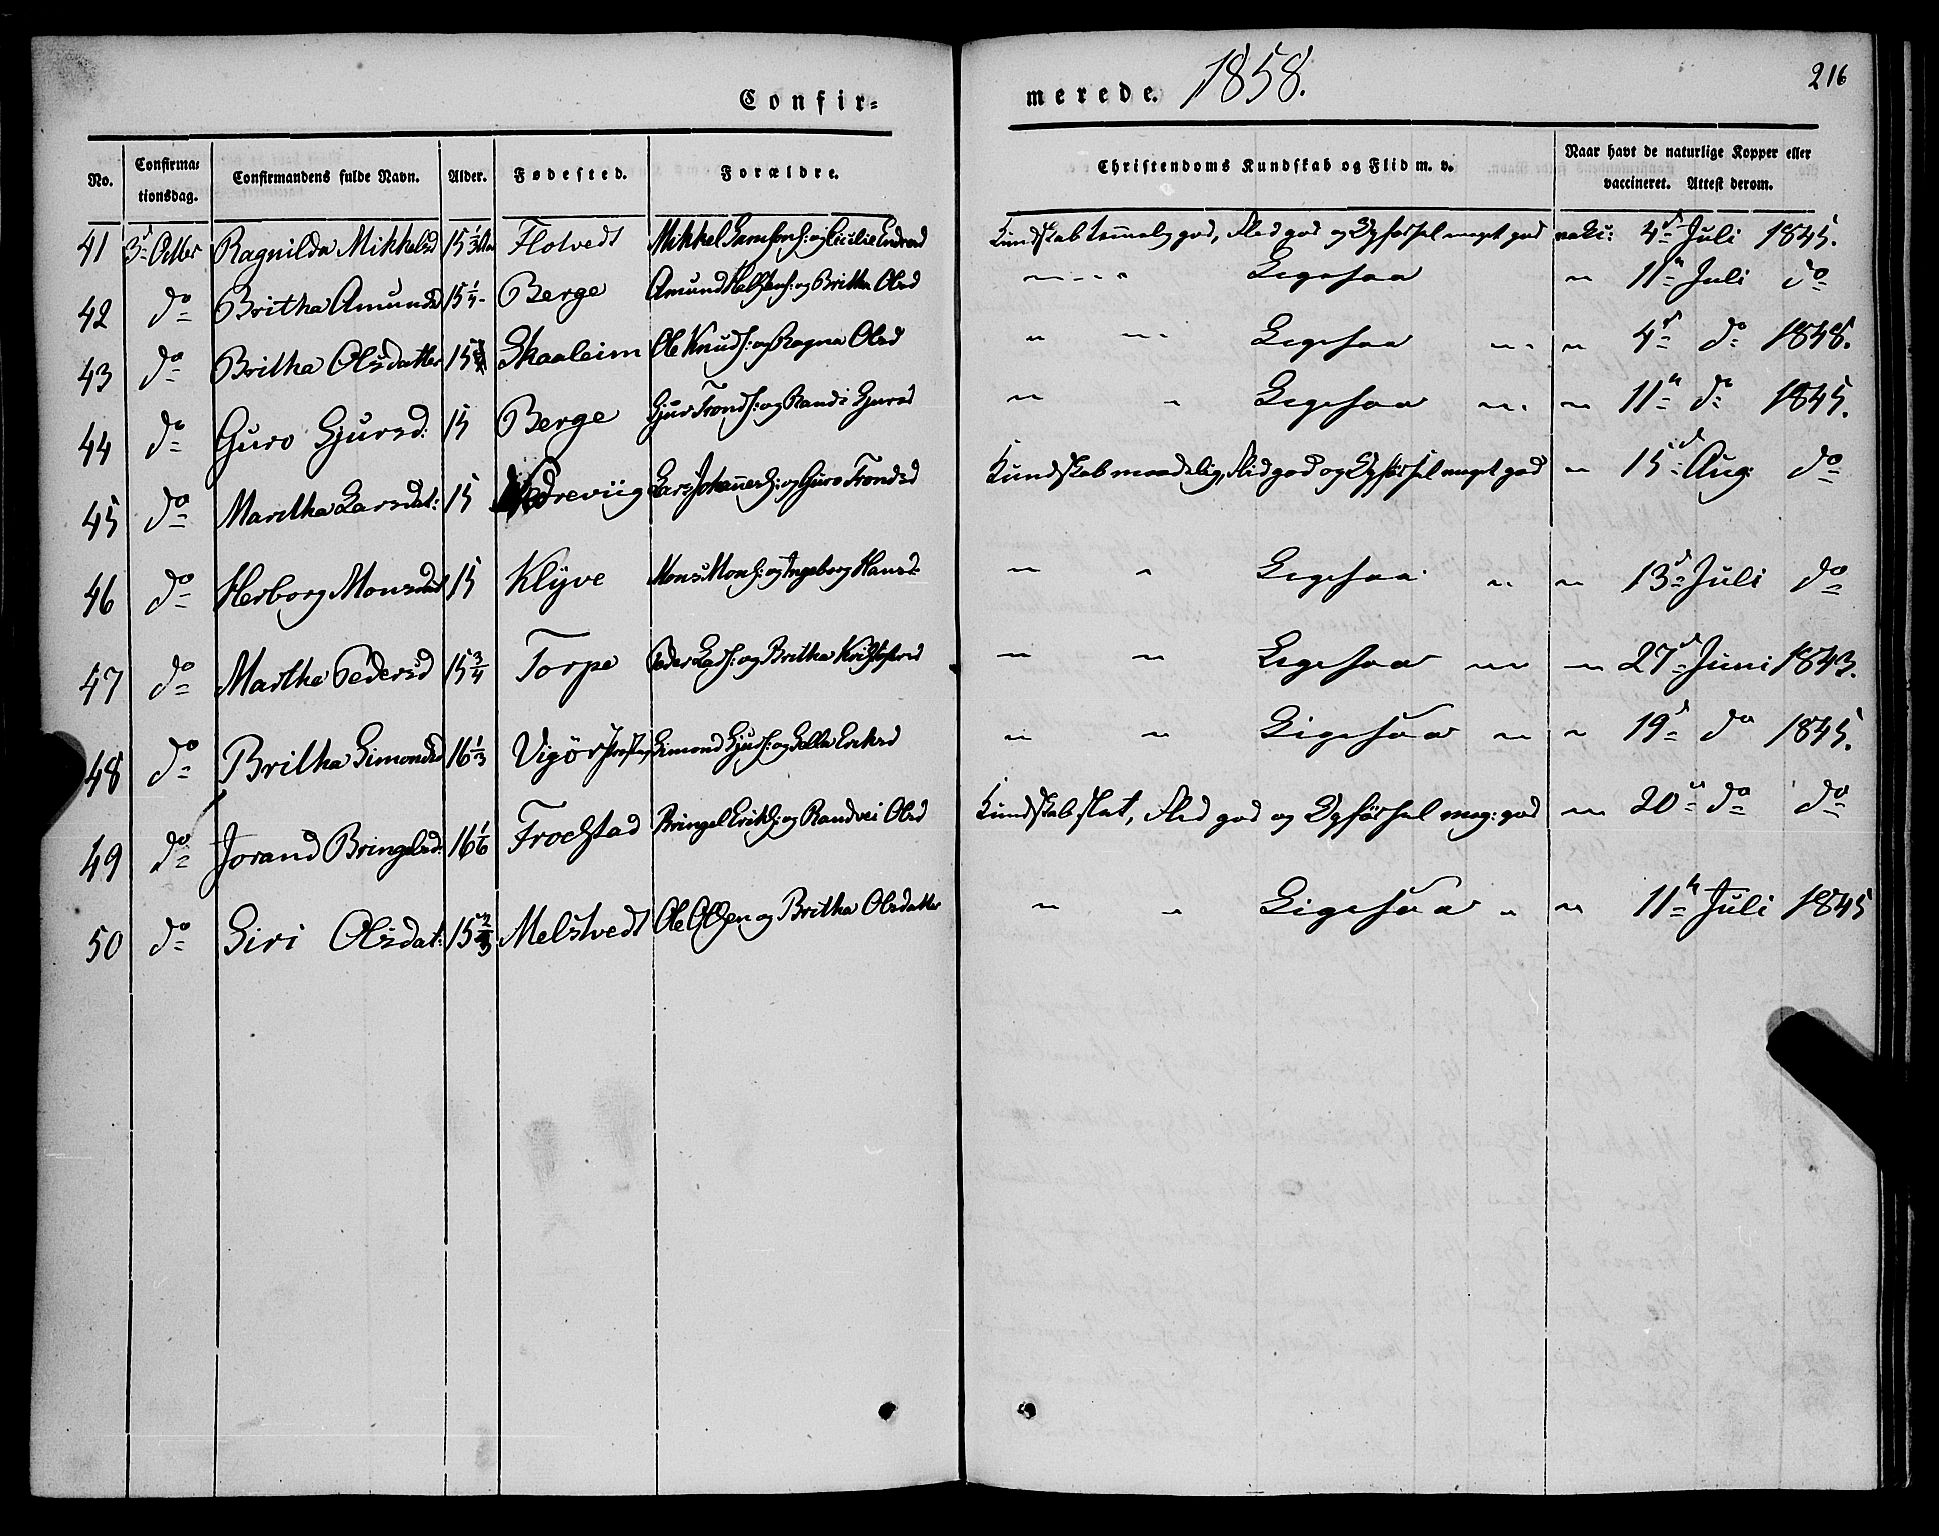 Confir-
merede. 1858.
216
No. Confirma-tionsdag. Confirmandens fulde Navn. Alder. Fødested. Forældre. Christendoms Kundskab og Flid m. v. Naar havt de naturlige Kopper eller vaccineret. Attest derom.
41 3d Octbr Ragnilda Mikkelsd 15 1/3 Flotvedt Mikkel og Cicilie Kundskab temmelg god, Flid god og Opførsel meget god vakc: 4d Juli 1845.
42 do Britha Amundsd 15 1/4 Berge Amund og Britha Olsd " " Ligesaa " 11te Juli do
43 do Britha Olsdatter 15 Skaaleim Ole Knuds: og Ragna Olsd " " Ligesaa " " 4d do 1845.
44 do Guro Gjursd: 15 Berge Gjur Tronds: og Randi Gjursd " " Ligesaa " " 11te do 1845.
45 do Martha Larsdat: 15 Nedreviig Lars Johannes: og Guro Trondsd Kundskab maadelig, Flid god og Opførsel meget god " 15d Aug: do
46 do Herborg Monsdat 15 Klyve Mons Mons: og Ingeborg Hansd: " " Ligesaa " " 13d Juli do
47 do Martha Pedersd 15 3/4 Torpe Peder Lars: og Britha " " Ligesaa " " 27d Juni 1843.
48 do Britha Simonsd 16 1/3 Vigør Simond Gjurs: og Eriksd " " Ligesaa " " 19d do 1845.
49 do Jorand Bringelsd: 16 1/6 Frochstad Bringel Eriks: og Randvei Olsd Kundskab slet, Flid god og Opførsel meg: god " 20de do do
50 do Siri Olsdat: 15 2/3 Melstvedt Ole Olsen og Britha Olsdatter " " Ligesaa " " 11te Juli 1845